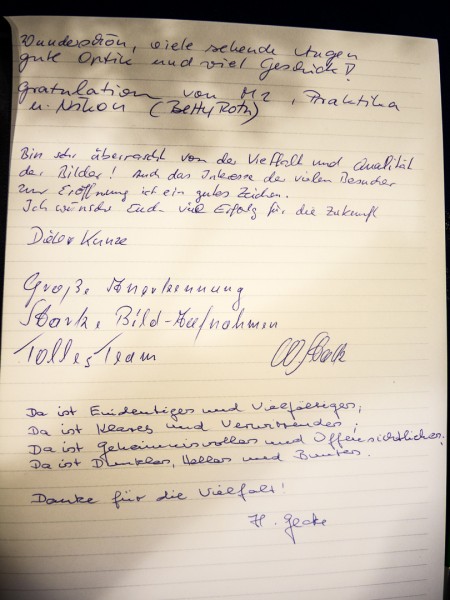 Wunderschön, viele sehende Augen
gute Optik und viel Geschick!
Gratulation von M2, Praktika
u. Nikon (Betty Roth)
Bin sehr überrascht von der Vielfalt und Qualität
der Bilder! Auch das Interesse der vielen Besucher
zur Eröffnung ist ein gutes Zeichen.
Ich wünsche Euch viel Erfolg für die Zukunft
Dieter Kunze
Große Anerkennung
Starke Bild-Aufnahmen
Tolles Team
Da ist Eindeutiges und Vielfältiges;
Da ist Klares und Verwirrendes;
Da ist Geheimnisvolles und Offensichtliches;
Da ist Dunkles, Helles und Buntes.
Danke für die Vielfalt!
H. Gecke